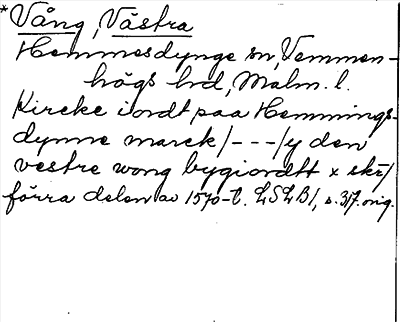 *Vång, Västra
Hemmesdynge sn, Vemmen-
högs hrd, Malm. l.
Kircke iordt paa Hemmings-
dynne marck/---/y den
vestre wong bygiordtt x skr/
förra delen av 1570-t. LSLB1, s. 317. orig.